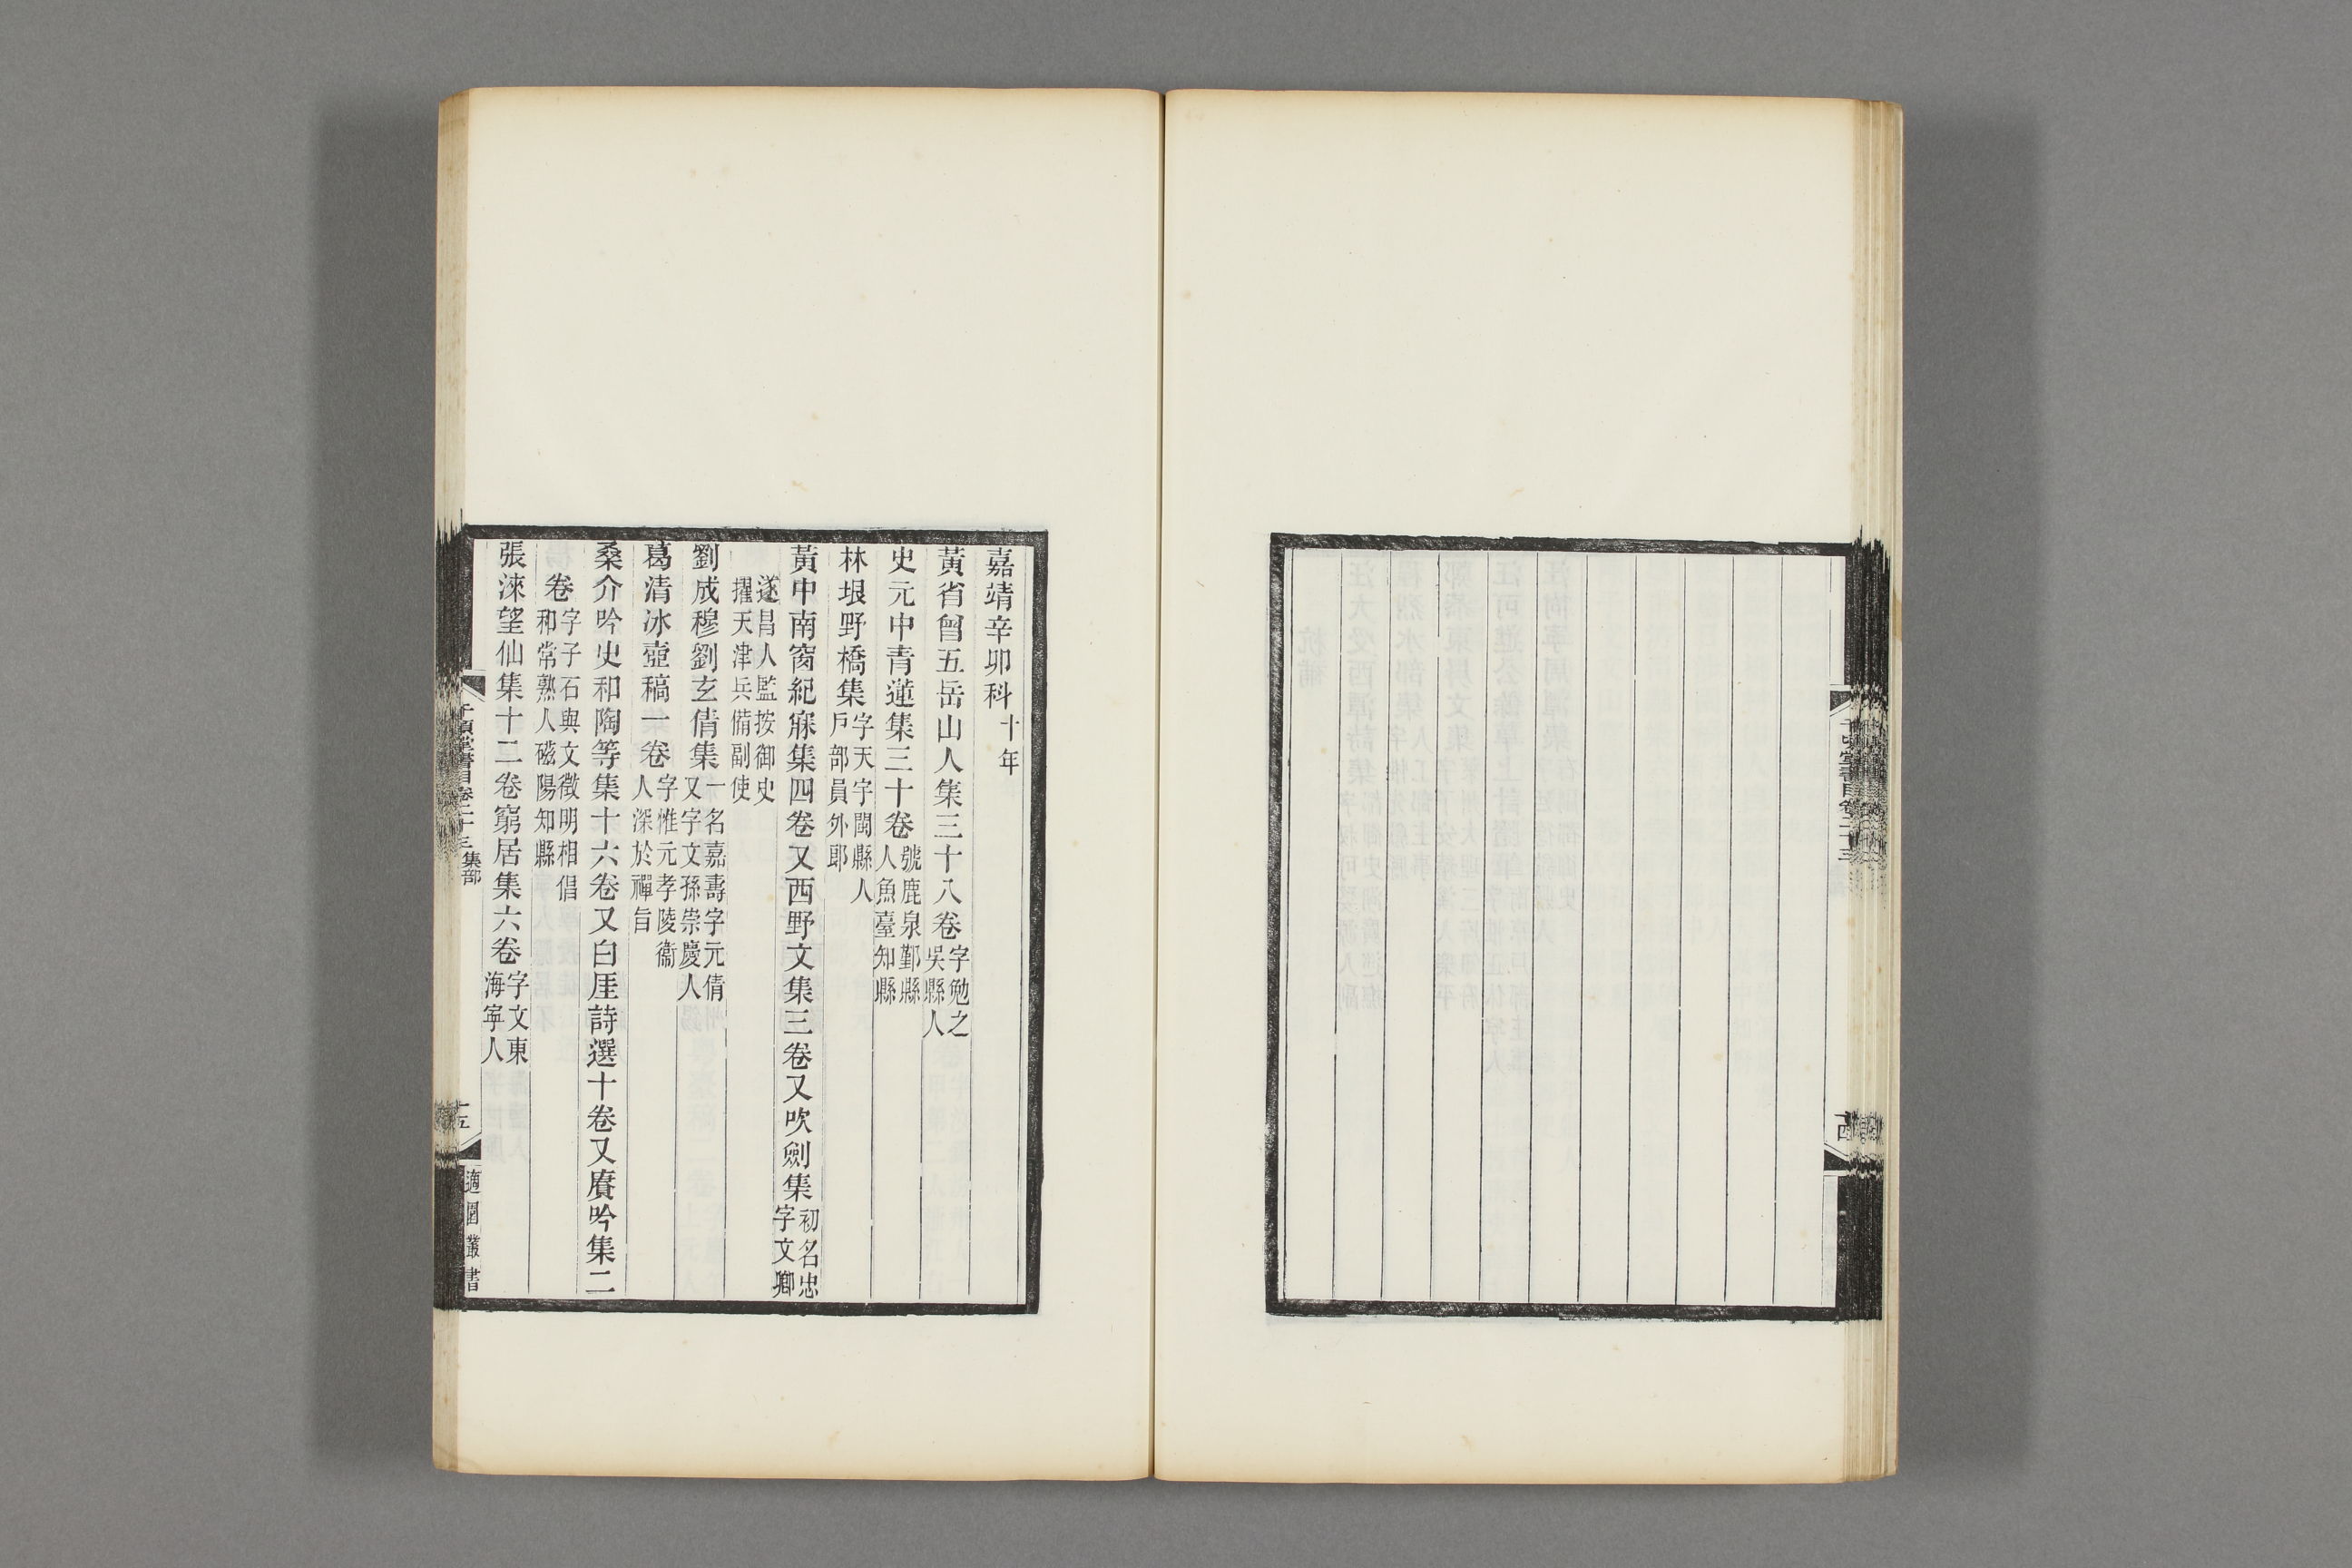 嘉靖辛卯科十年
黃省曾五岳山人集三十八卷字勉之吳縣人
史元中青蓮集三十卷號鹿泉鄞縣人魚臺知縣
林垠野橋集字天宇閩縣人戶部員外郎
黃中南窗紀寐集四卷又西野文集三卷又吹劍集初名忠字文卿
遂昌人監按御史擢天津兵備副使
劉成穆劉玄倩集一名嘉壽字元倩又字文孫崇慶人
葛清冰壺稿一卷字惟元孝陵衞人深於禪旨
桑介吟史和陶等集十六卷又白厓詩選十卷又賡吟集二
卷字子石與文徵明相倡和常熟人磁陽知縣
張淶望仙集十二卷窮居集六卷字文東海寧人
千頃堂書目卷二十三集部
十五
適園叢書